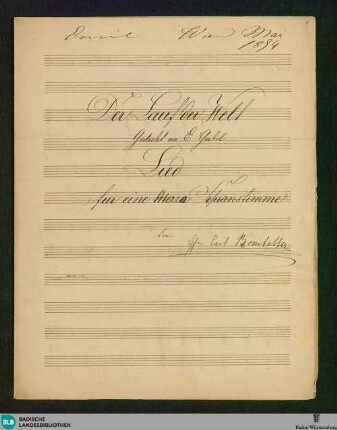 Wien Mai
1894
Der Lauf der Welt
Gedicht von E Geibel
Lied
für eine Mezzo Sopranstimme
von
Carl Bombelles
BLB
BADISCHE
LANDESBIBLIOTHEK
Baden-Württemberg